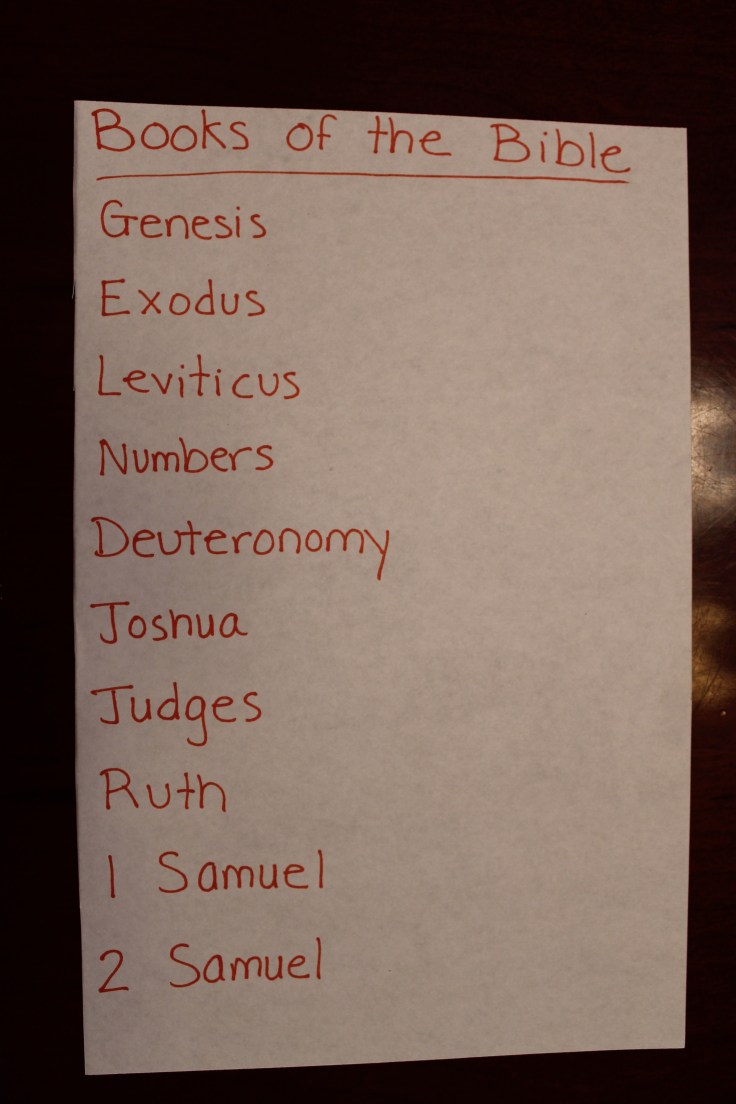 Books of the Bible
Genesis
Exodus
Leviticus
Numbers
Deuteronomy
Joshua
Judges
Ruth
1 Samuel
2 Samuel